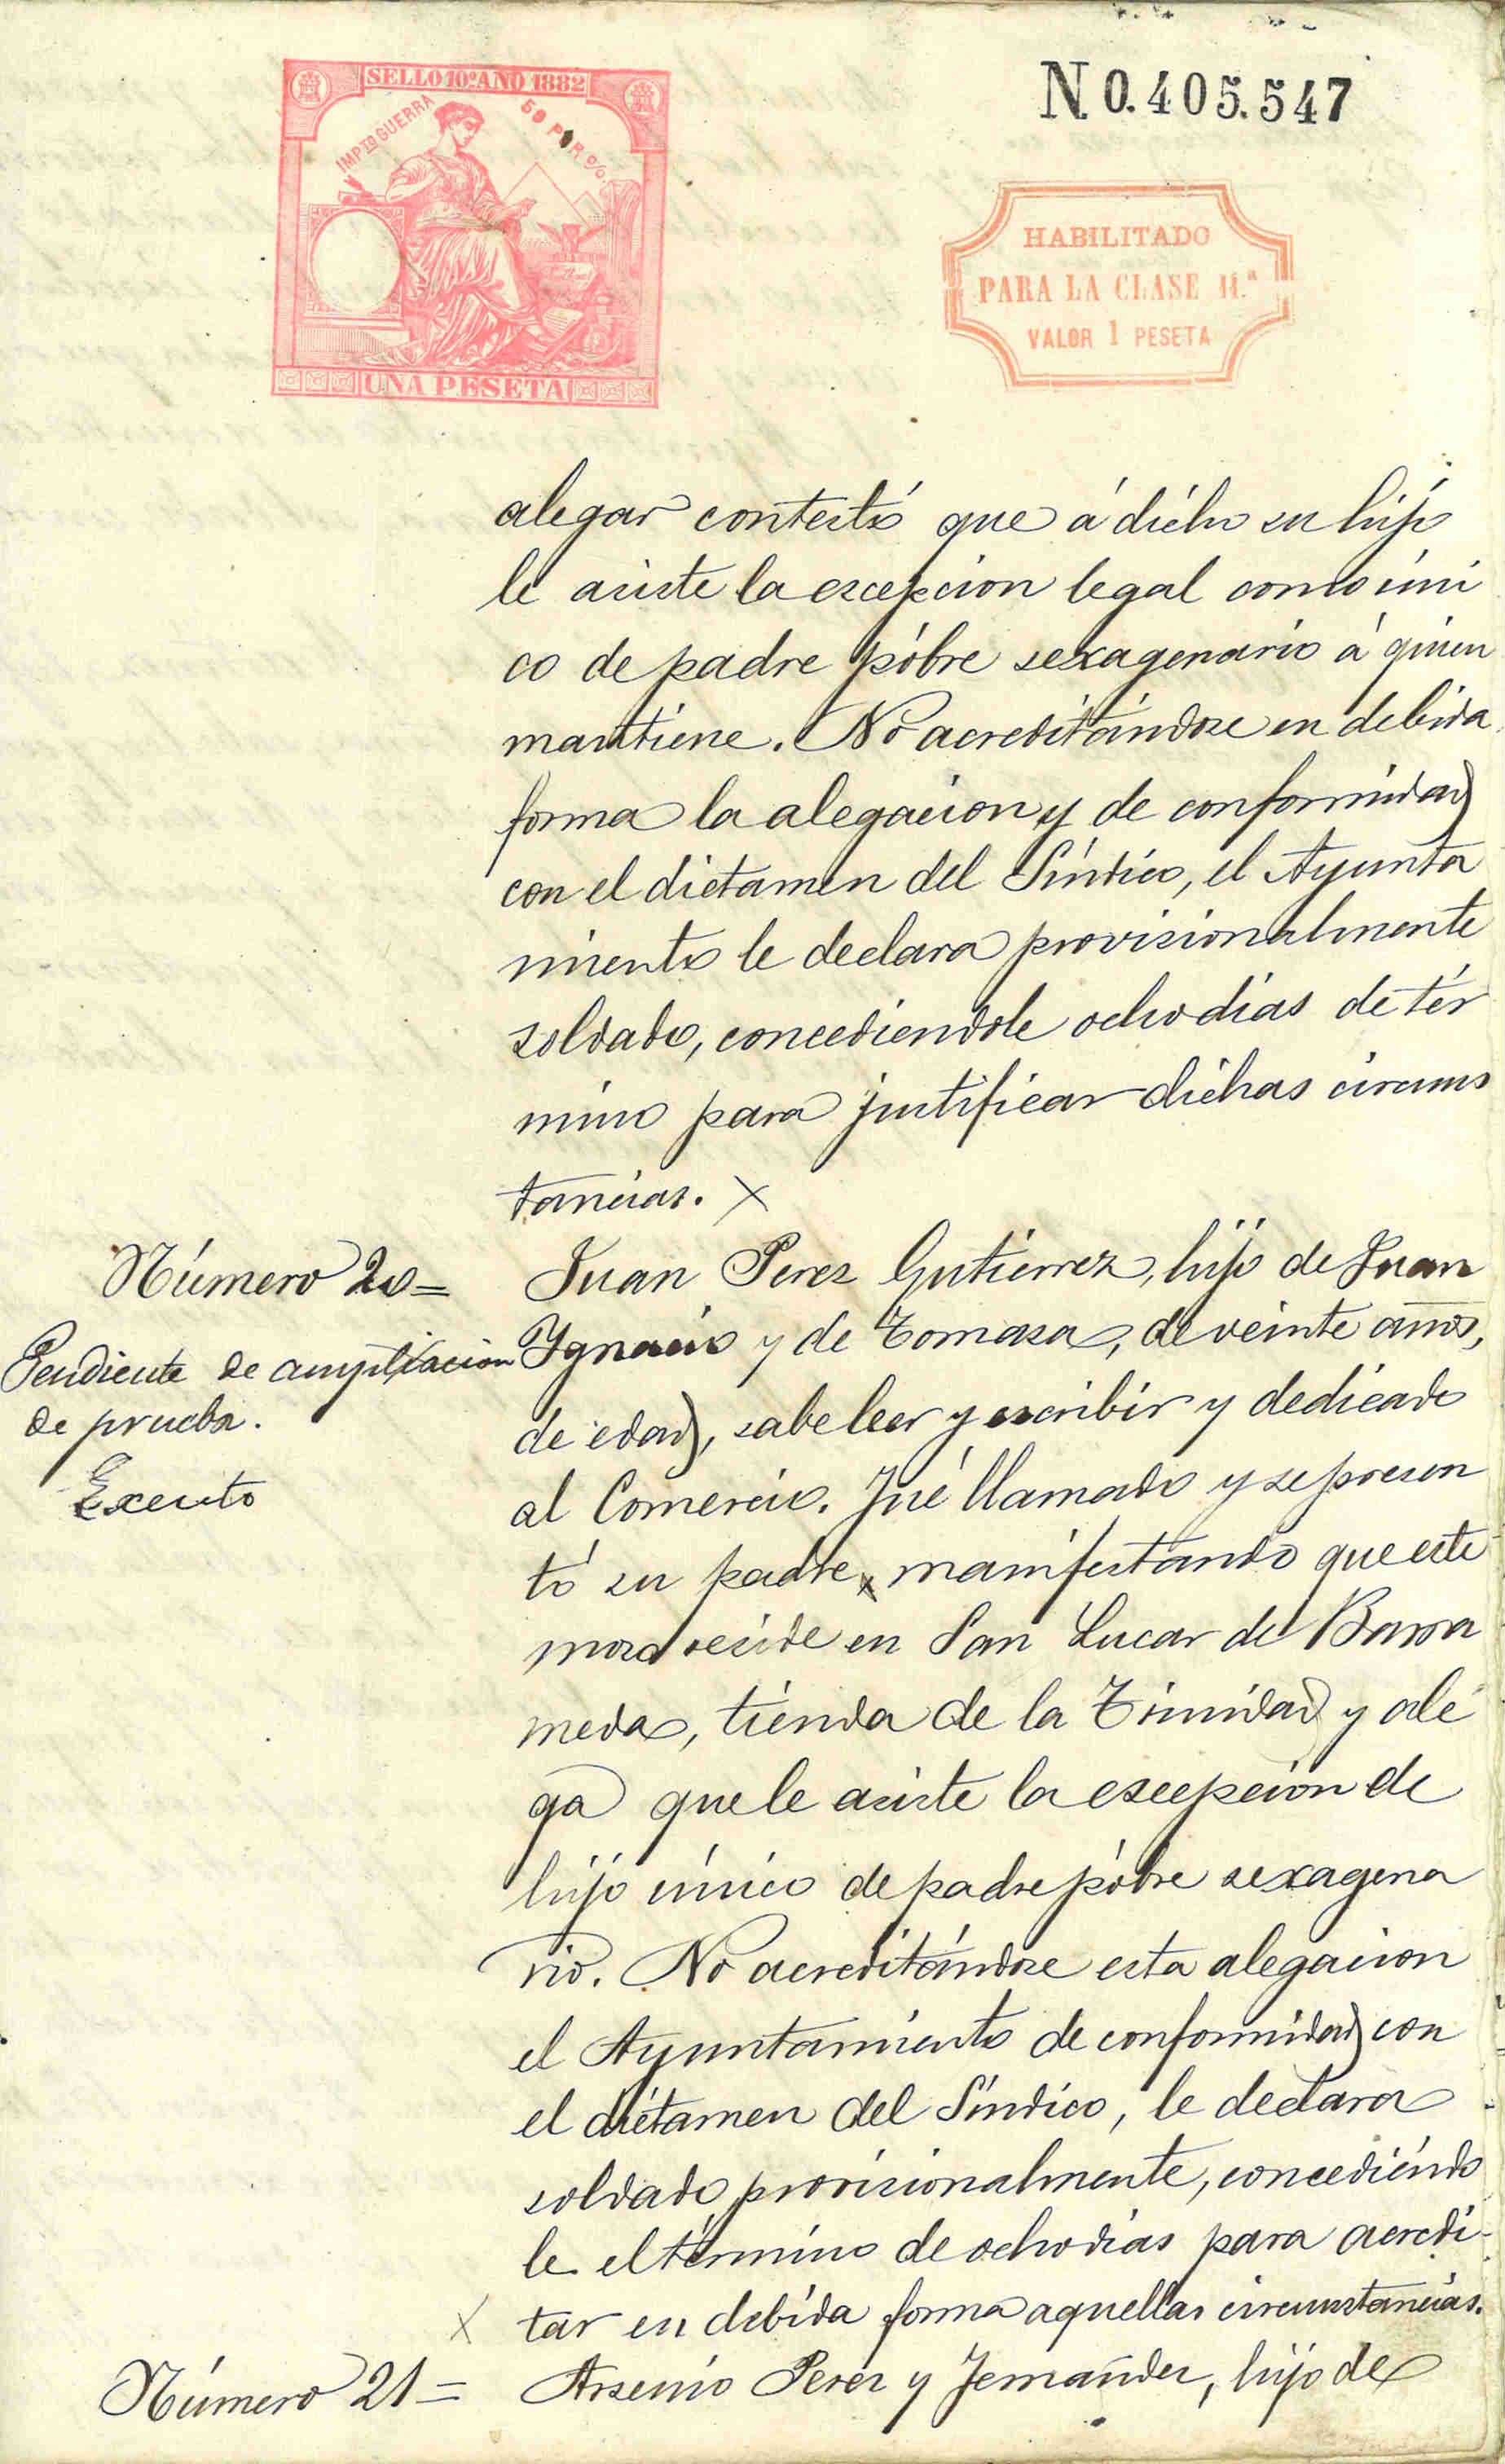 SELLO 10º AÑO 1882
IMPTO GUERRA
50 POR %
UNA PESETA
N 0.405.547
HABILITADO
PARA LA CLASE 11.ª
VALOR 1 PESETA
alegar contestó que á dicho su hijo
le asiste la escepcion legal como úni
co de padre póbre sexagenario á quien
mantiene. No acreditándose en debida
forma la alegacion y de conformidad
con el dictamen del Síndico, el Ayunta
miento le declara provisionalmente
soldado, concediendole ocho dias de tér
mino para justificar dichas circuns
tancias. X
Número 20=
Juan Perez Gutierrez, hijo de Juan
Pendiente de ampliacion
de prueba.
Exento
Ygnacio y de Tomasa, de veinte años,
de edad, sabe leer y escribir y dedicado
al Comercio. Fué llamado y se presen
tó su padre x manifestando que este
mozo reside en San Lucar de Barra
meda, tienda de la Trinidad y ale
ga que le asiste la escepcion de
hijo único de padre póbre sexagena
rio. No acreditándose esta alegacion
el Ayuntamiento de conformidad con
el dictamen del Síndico, le declara
soldado provisionalmente, concediéndo
le el término de ocho dias para acredi-
X tar en debida forma aquellas circunstancias.
Número 21=
Arsenio Perez y Fernandez, hijo de